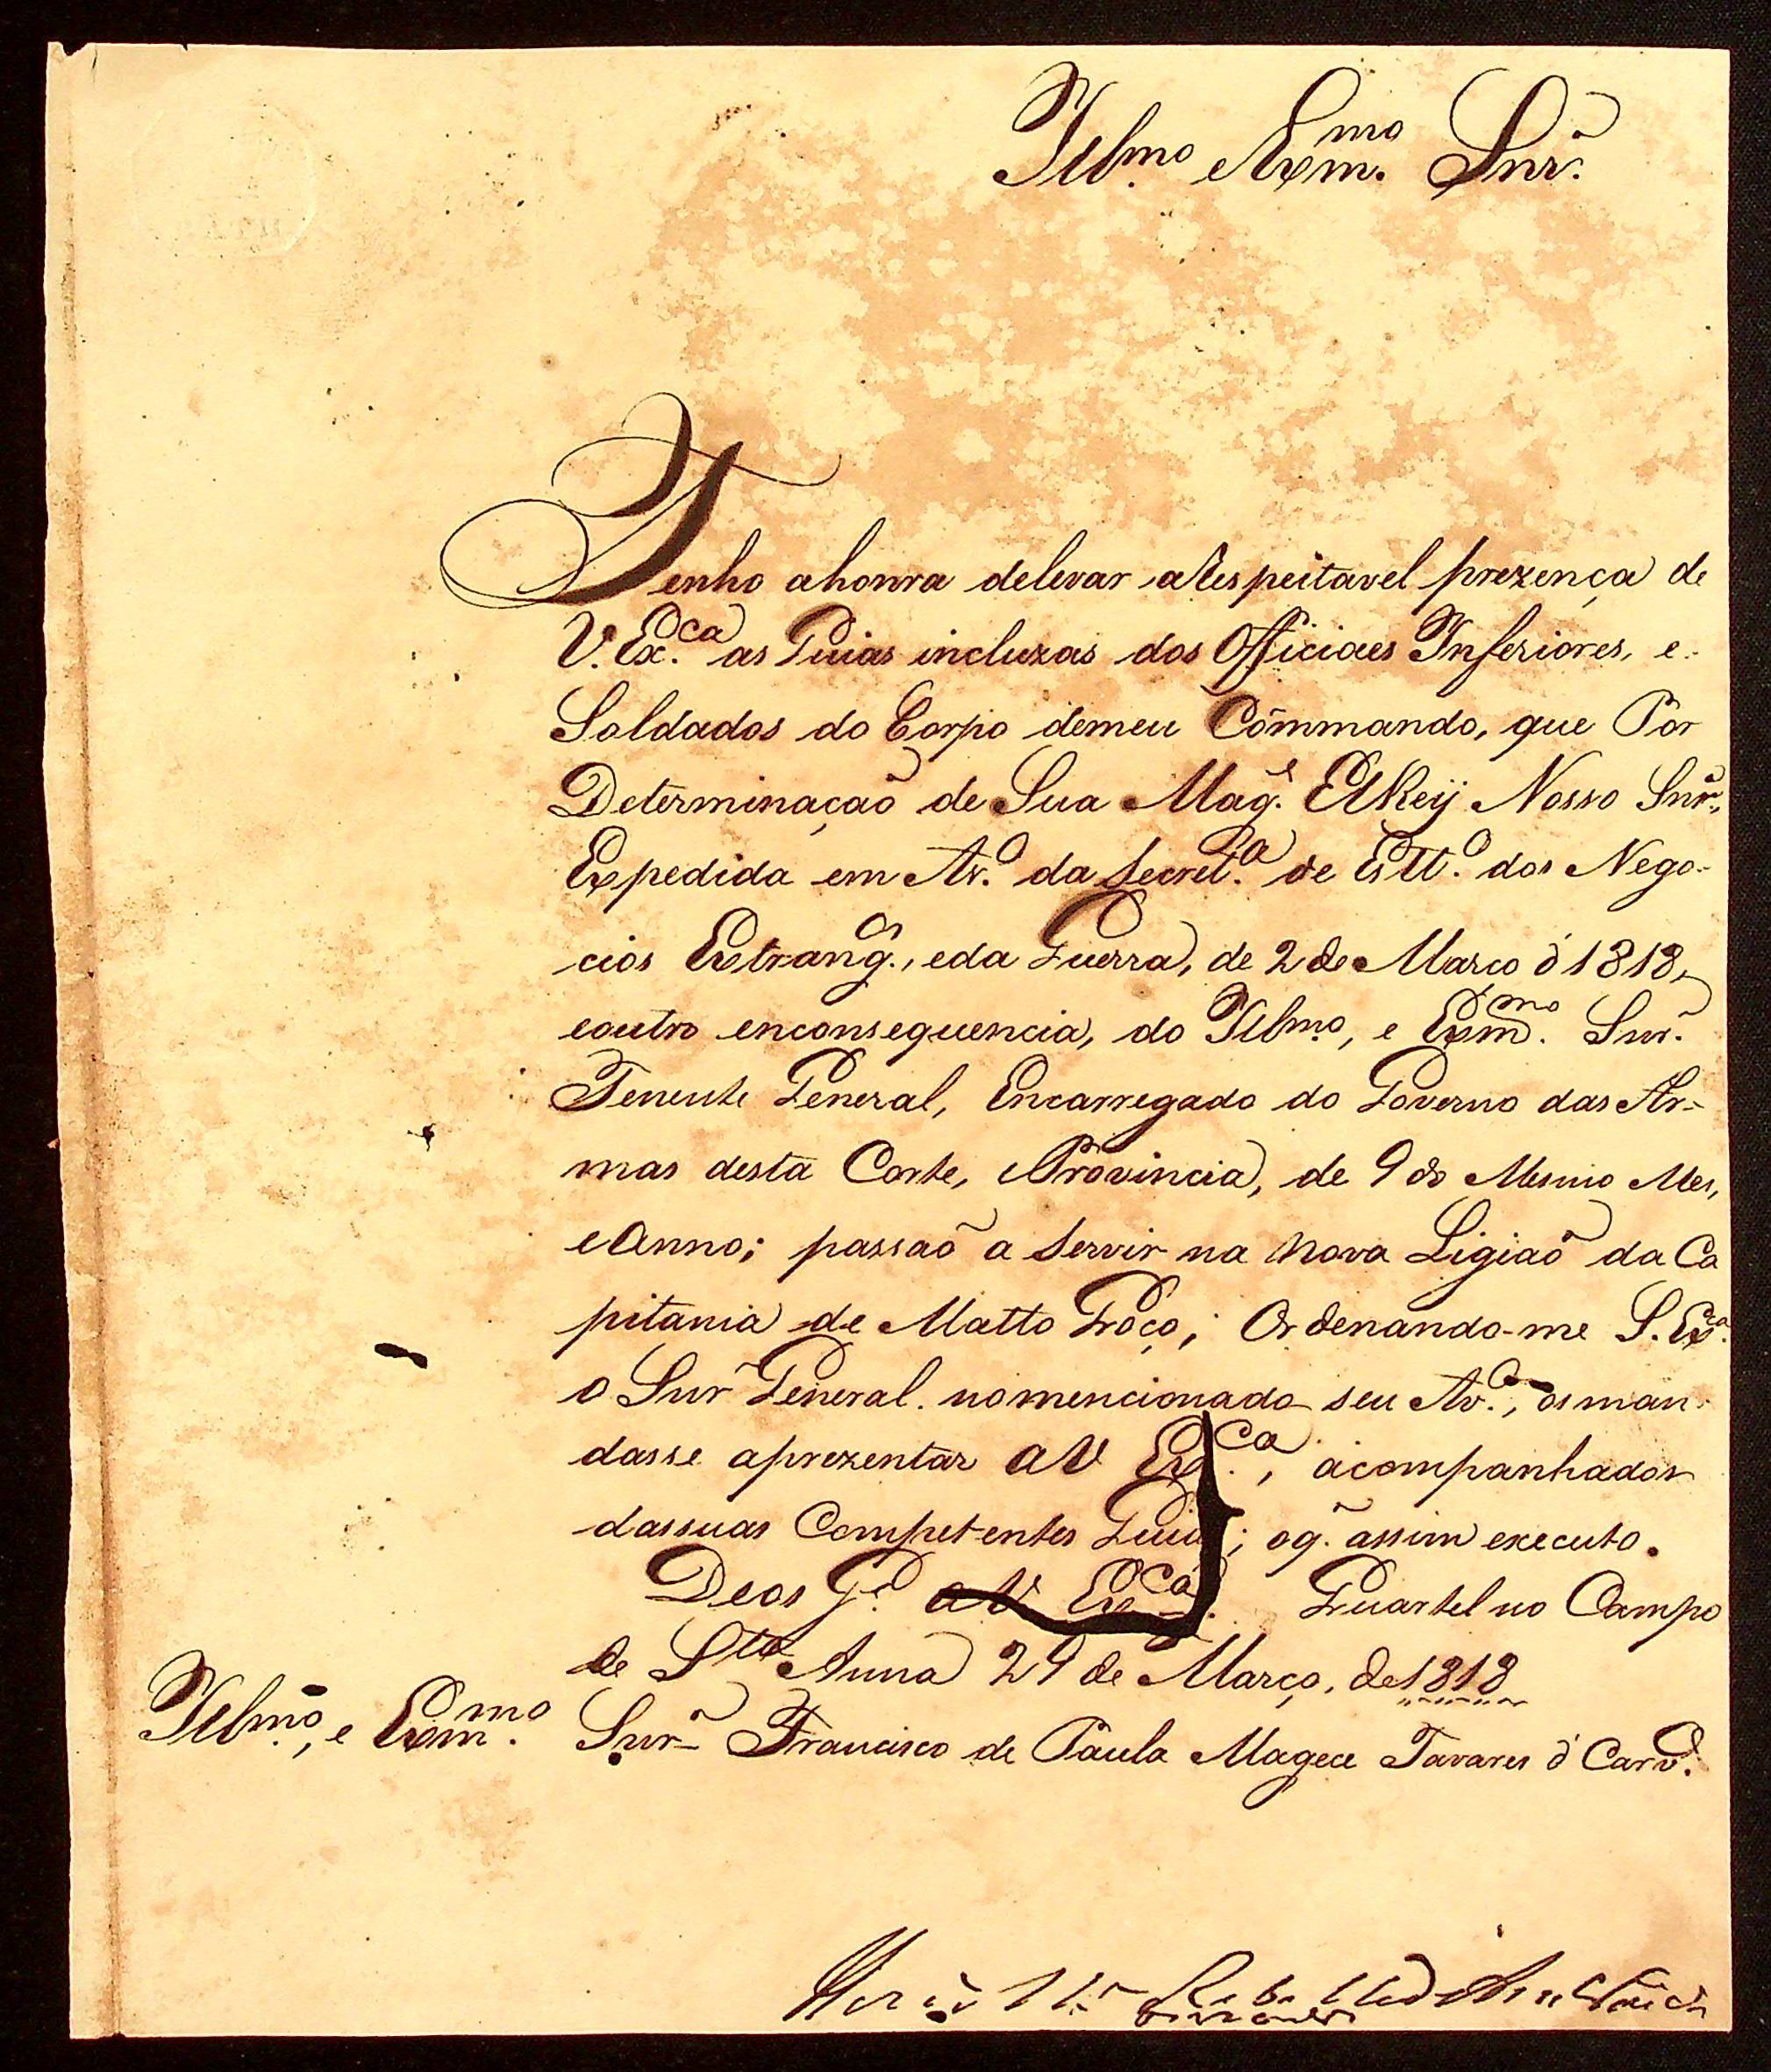 Illmo. e Exmmo. Snr.
Tenho ahonra delevar aRespeitavel prezença de
V. Exca. as Guias incluzas dos Officiaes Inferiores, e
Soldados do Corpo demeu Cõmmando, que Por
Determinaçaõ de Sua Mage. ElReÿ Nosso Snr.,
Expedida em Avo. da Secreta. de Estto. dos Nego-
cios Extrangos., eda Guerra, de 2 de Marco d' 1818,
eoutro enconsequencia, do Illmo., e Exmmo. Snr.
Tenente General, Encarregado do Governo das Ar-
mas desta Corte, eProvincia, de 9 do Mesmo Mes,
eAnno; passaõ a Servir na Nova Ligiaõ da Ca
pitania de Matto Groço; Ordenando-me S. Exca.
o Snr General. nomencionado seu Avo., os man-
dasse aprezentar aV Exca., acompanhados
dassuas Competentes Guias; oq. assim executo.
Deos Ge. aV. Exca. Quartel no Campo
de Stta Anna 24 de Março, de 1818
Illmo., e Exmmo. Snr Francisco de Paula Magece Tavares d' Carvo.